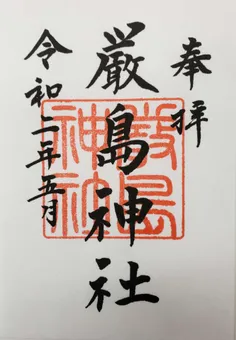 奉拝
厳島神社
厳島
神社
令和二年五月